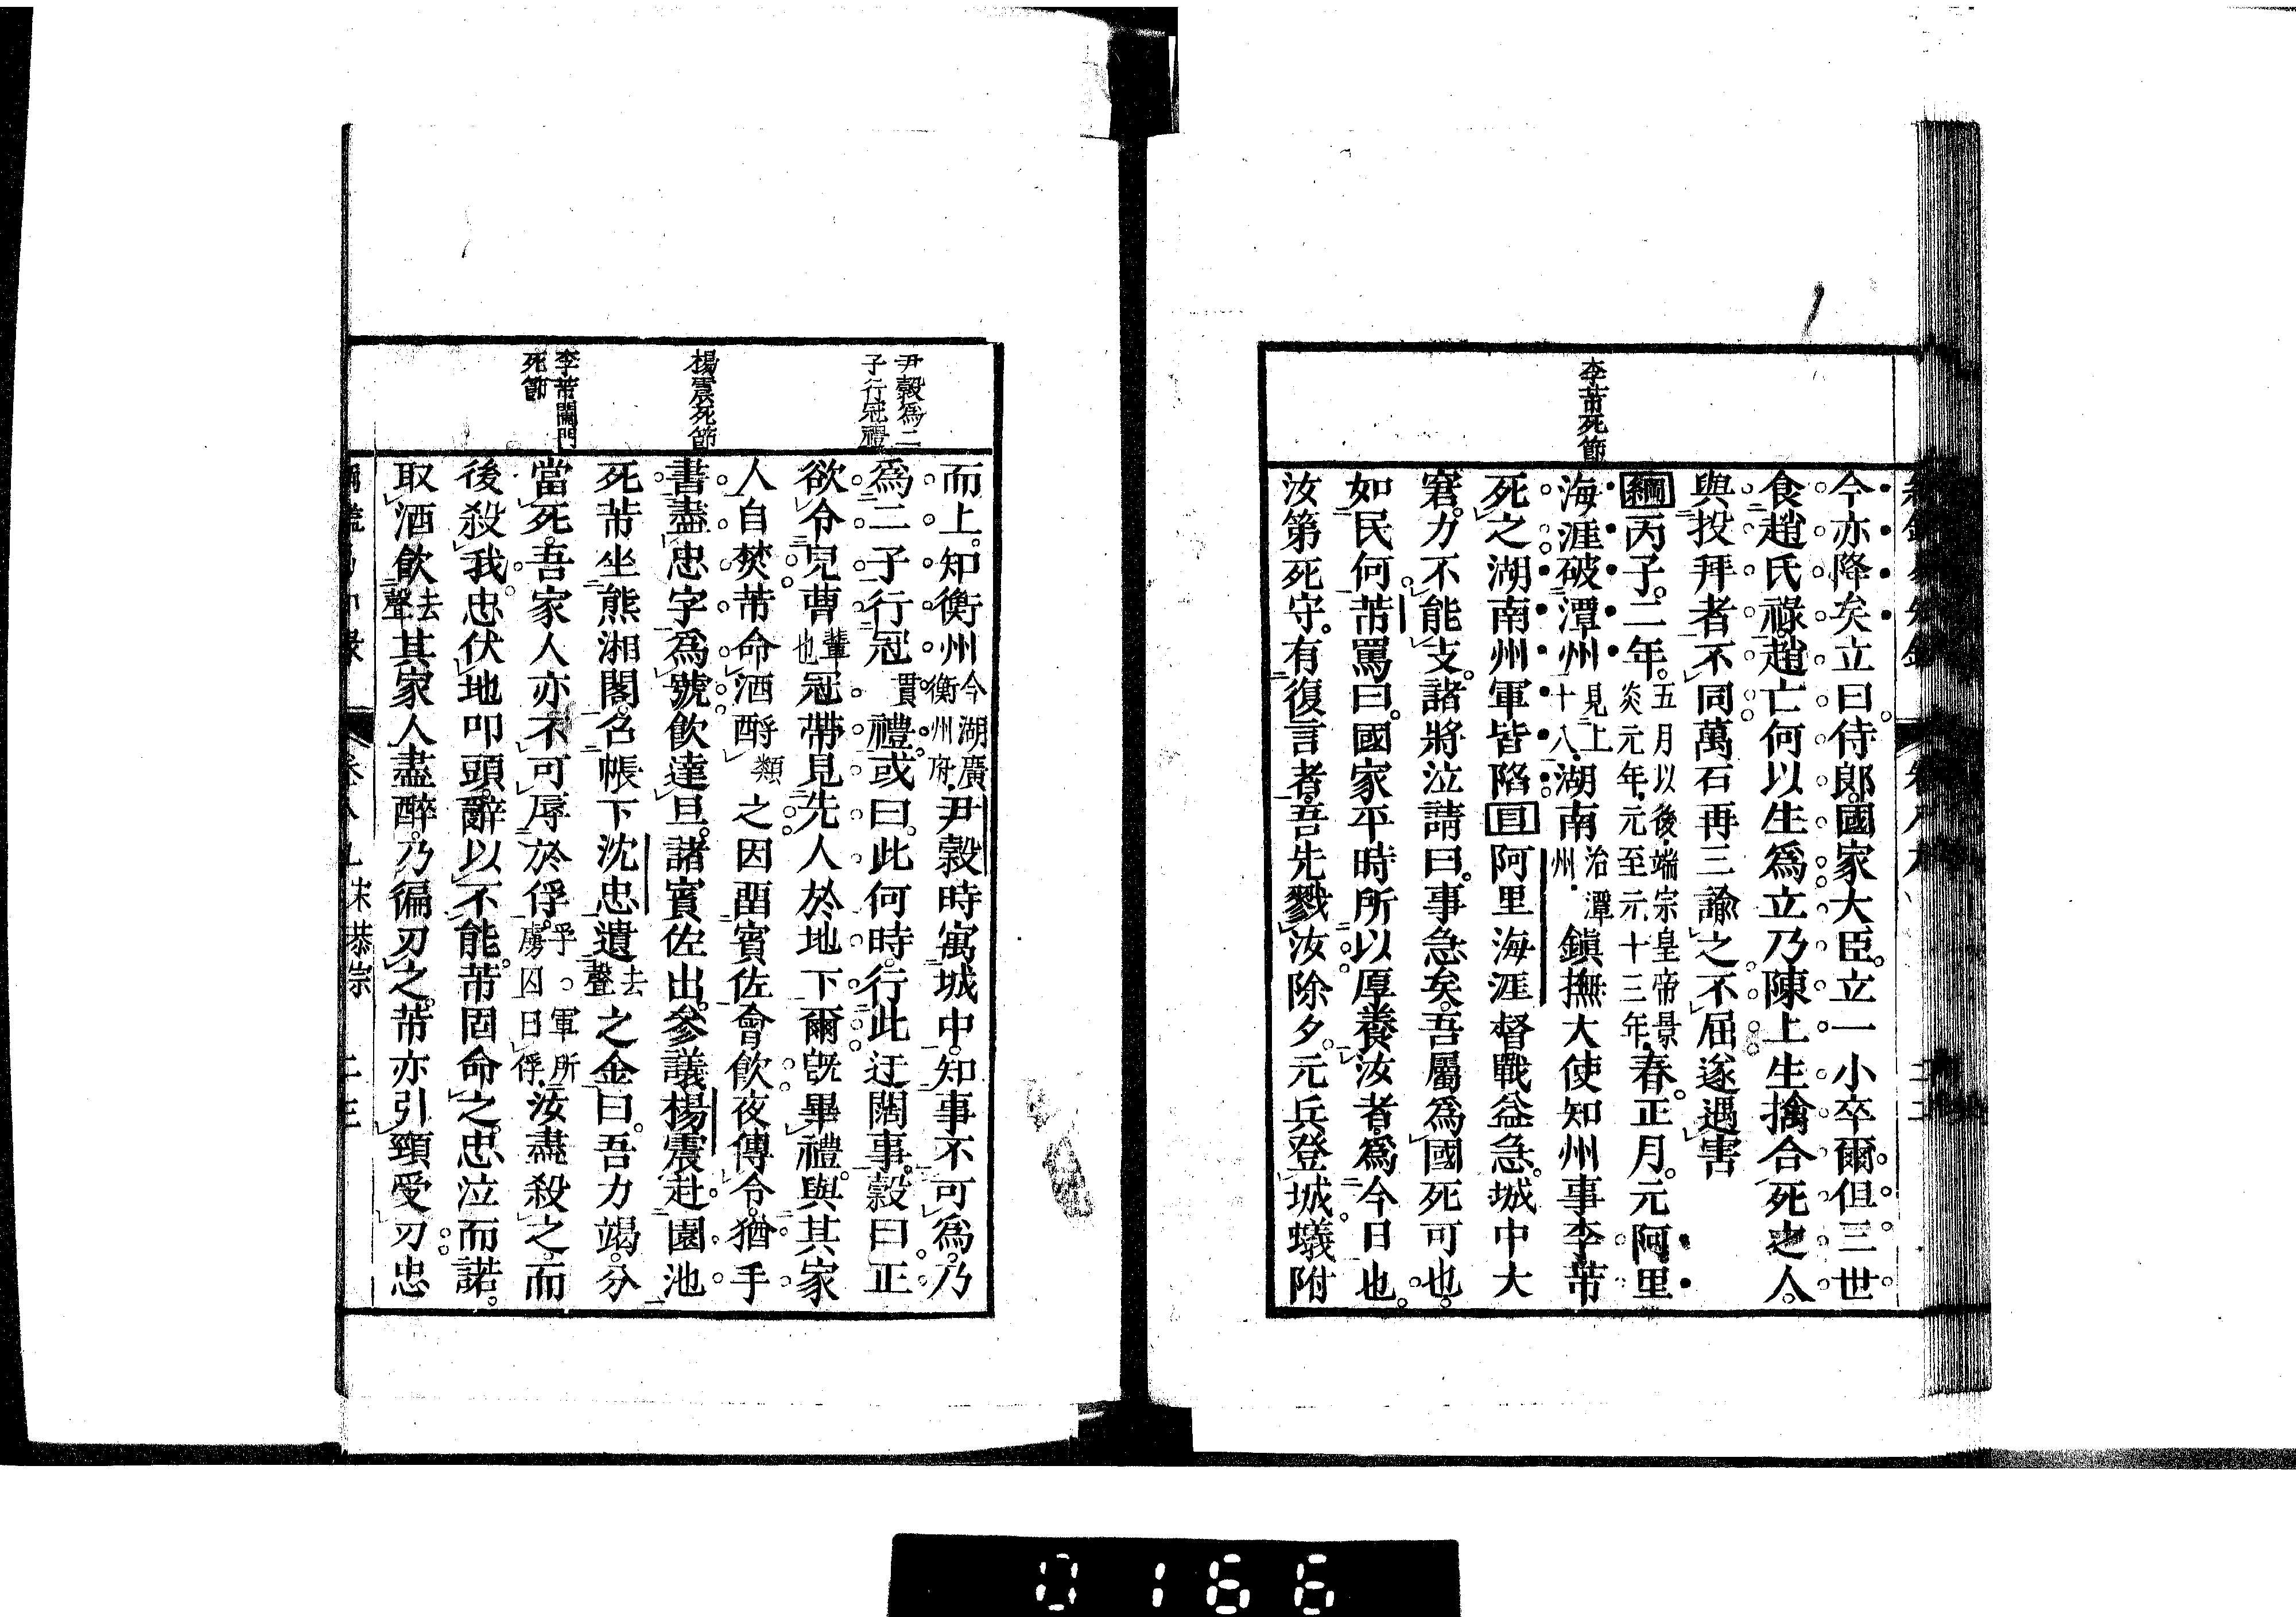 李芾死節
今亦降矣立曰侍郎國家大臣立一小卒爾但三世
食趙氏祿趙亡何以生爲立乃陳上生擒合死之人
與投拜者不同萬石再三諭之不屈遂遇害
綱丙子二年五月以後端宗皇帝景炎元年元至元十三年春正月元阿里
海涯破潭州見上十八湖南治潭州鎮撫大使知州事李芾
死之湖南州軍皆陷目阿里海涯督戰益急城中大
窘力不能支諸將泣請曰事急矣吾屬爲國死可也
如民何芾罵曰國家平時所以厚養汝者爲今日也
汝第死守有復言者吾先戮汝除夕元兵登城蟻附
尹穀爲二子行冠禮
楊震死節
李芾闔門死節
而上知衡州今湖廣衡州府尹穀時寓城中知事不可爲乃
爲二子行冠貫禮或曰此何時行此迂闊事穀曰正
欲令兒曹輩也冠帶見先人於地下爾旣畢禮與其家
人自焚芾命酒酹類之因留賓佐會飲夜傳令猶手
書盡忠字爲號飲達旦諸賓佐出參議楊震赴園池
死芾坐熊湘閣召帳下沈忠遺去聲之金曰吾力竭分
當死吾家人亦不可辱於俘孚。軍所虜囚曰俘汝盡殺之而
後殺我忠伏地叩頭辭以不能芾固命之忠泣而諾
取酒飲去聲其家人盡醉乃徧刃之芾亦引頸受刃忠
宋恭宗